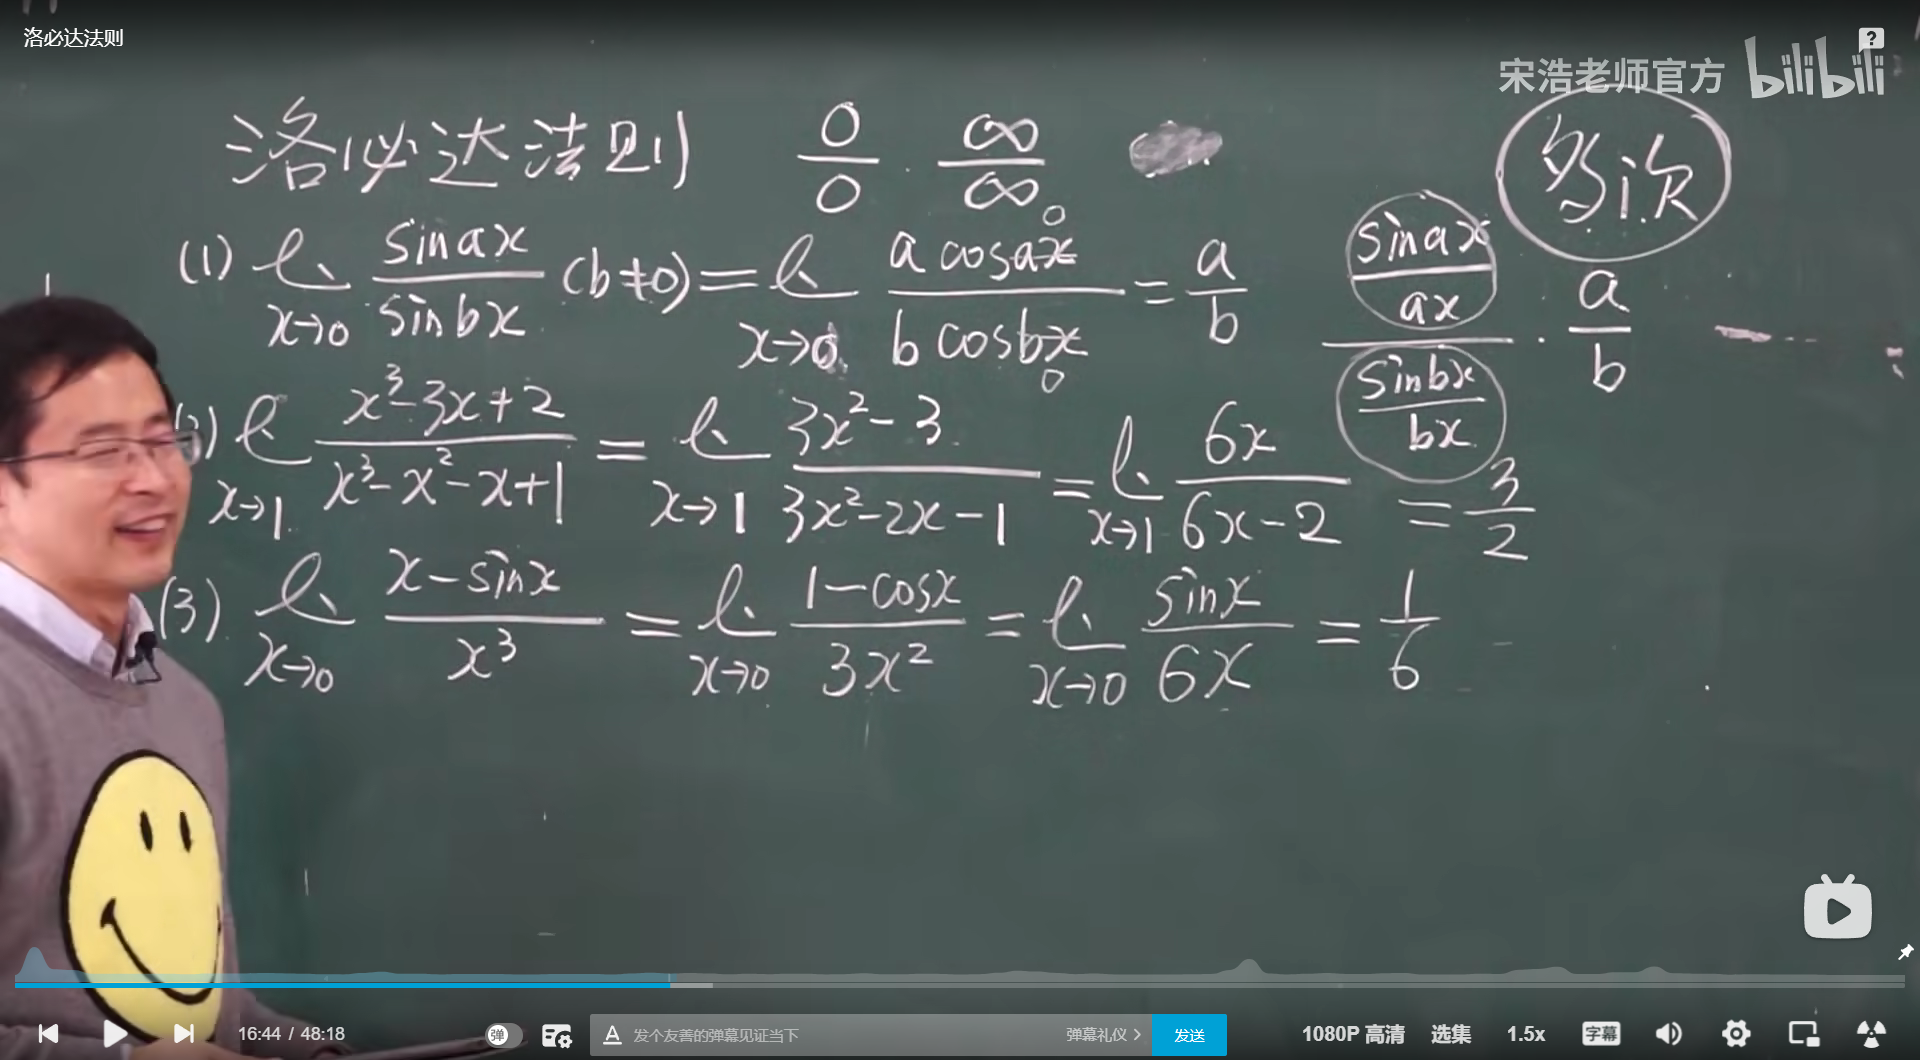 洛必达法则
宋浩老师官方 bilibili
?
洛必达法则 0/0 . ∞/∞ 多次
(1) lim x→0 sinax/sinbx (b≠0) = lim x→0 a cosax/b cosbx = a/b
0
0
(sinax/ax)/(sinbx/bx) · a/b
) lim x→1 x³-3x+2/x³-x²-x+1 = lim x→1 3x²-3/3x²-2x-1 = lim x→1 6x/6x-2 = 3/2
(3). lim x→0 x-sinx/x³ = lim x→0 1-cosx/3x² = lim x→0 sinx/6x = 1/6
16:44 / 48:18 弹 A 发个友善的弹幕见证当下 弹幕礼仪 > 发送 1080P 高清 选集 1.5x 字幕